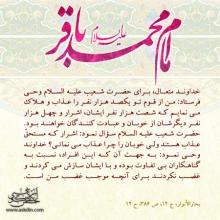 امام محمد باقر
علیه السلام
خداوند متعال، برای حضرت شعیب علیه السلام وحی
فرستاد: من از قوم تو یکصد هزار نفر را عذاب و هلاک
می نمایم که شصت هزار نفر ایشان، اشرار و چهل هزار
نفر دیگرشان از خوبان و عبادت کنندگان خواهند بود.
حضرت شعیب علیه السلام سؤال نمود: اشرار که مستحق
عذاب هستند ولی خوبان را چرا عذاب می نمائی؟ خداوند
وحی نمود: به جهت آن که این افراد، نسبت به
گناهکاران بی تفاوت بوده و با ایشان سازش می کردند و
غضب نکردند برای آنچه موجب غضب من است.
بحارالأنوار، ج ۱۲، ص ۳۸۶، ح ۱۲